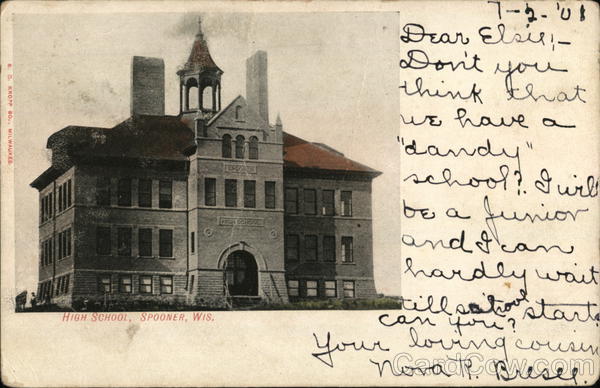 7-2-'01
Dear Elsie,-
Don't you
think that
we have a
"dandy"
school? I will
be a junior
and I can
hardly wait
till school starts
can you?
Your loving cousin
Nova R.
HIGH SCHOOL
HIGH SCHOOL, SPOONER, WIS.
CardCow.com